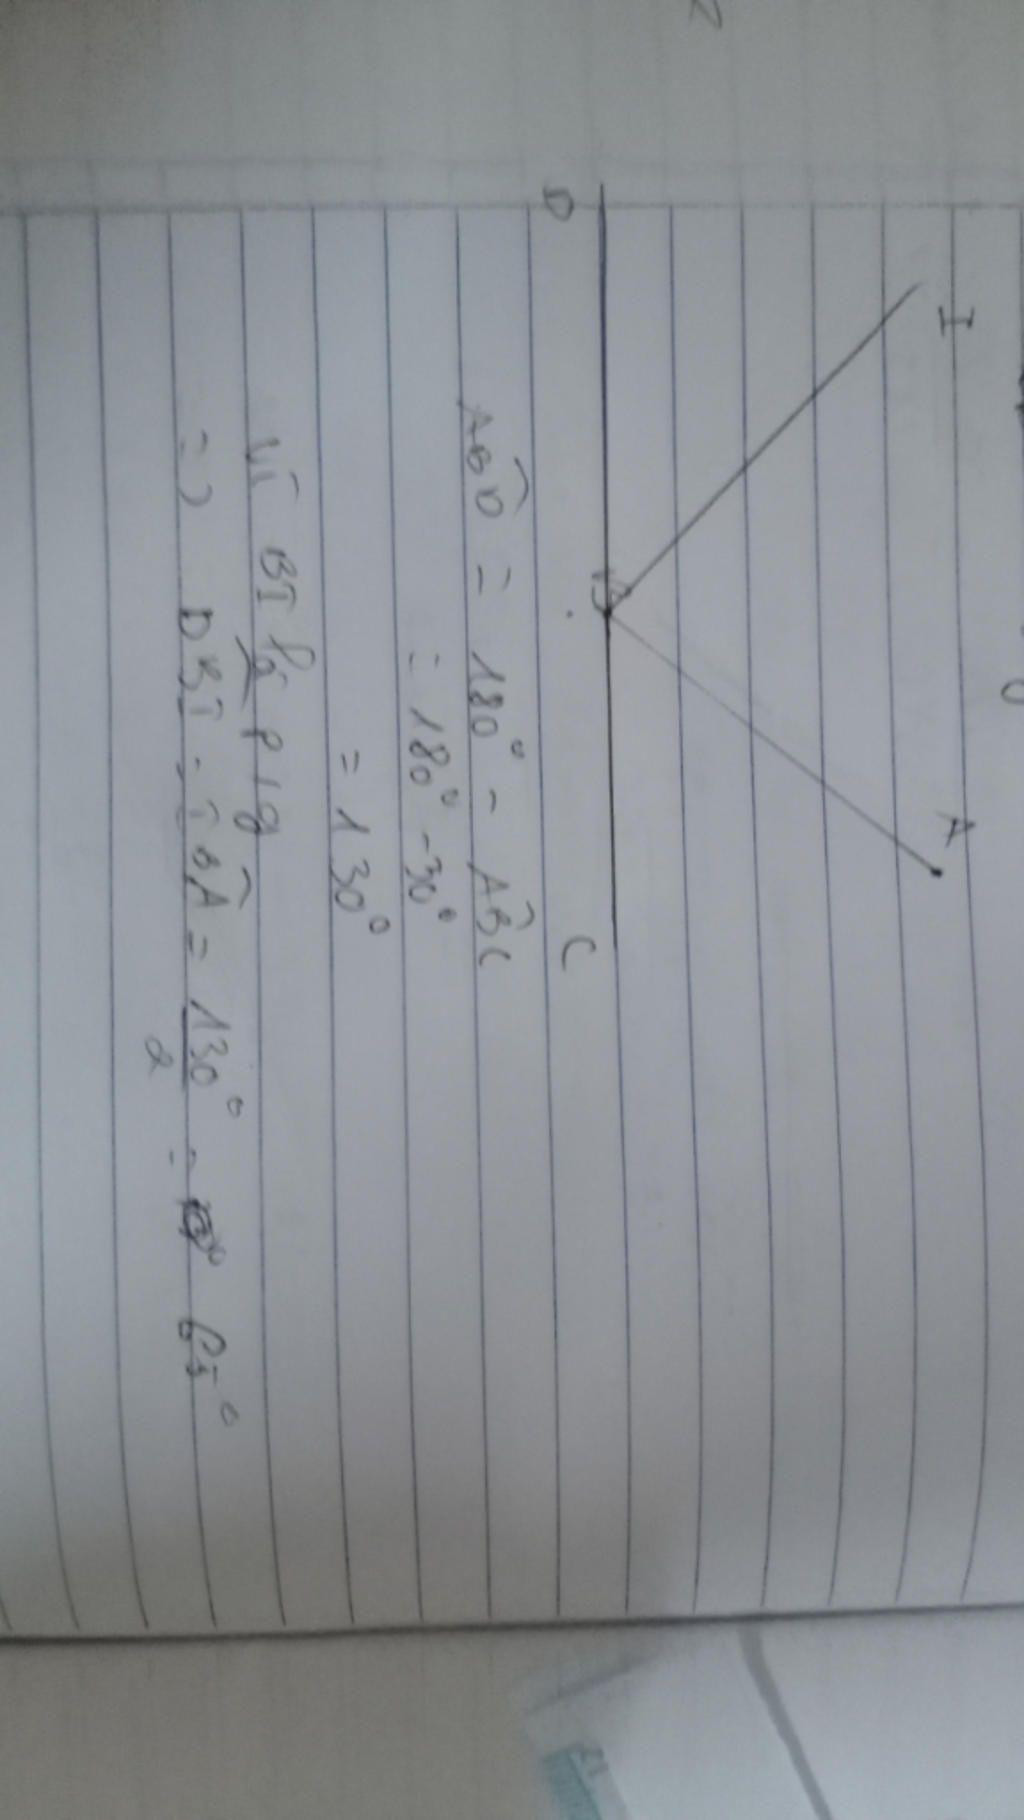 I
A
D
B
C
ABD̂ = 180° - AB̂C
= 180° - 30°
= 130°
Vì BI là p/g
=> DBI = IBÂ = 130° / 2 = 65°